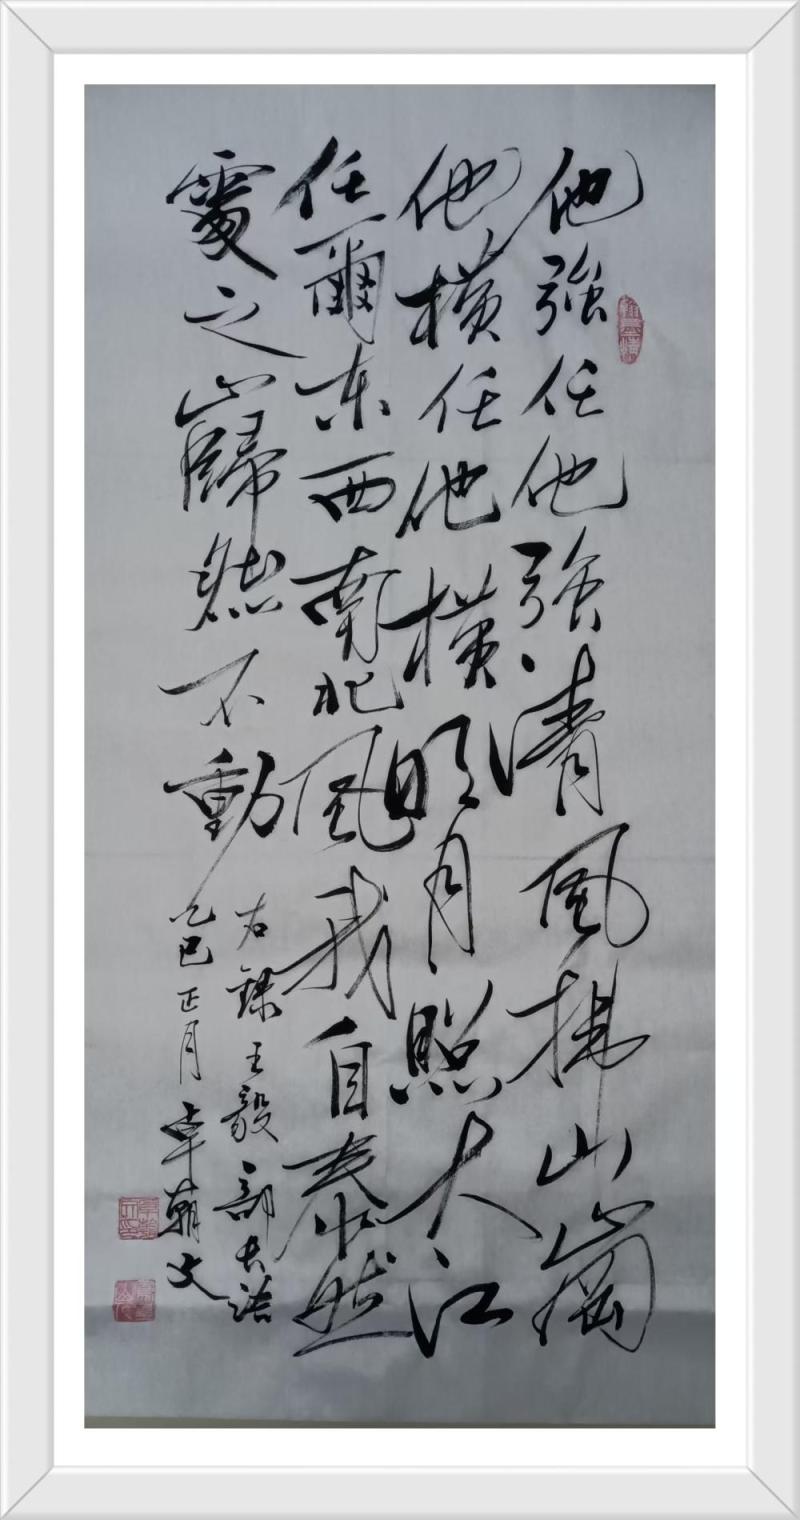 他強任他強清風拂山崗
他橫任他橫明月照大江
任爾东西南北風我自泰然
處之巋然不動
右錄王毅部长语
乙巳正月卓朝文